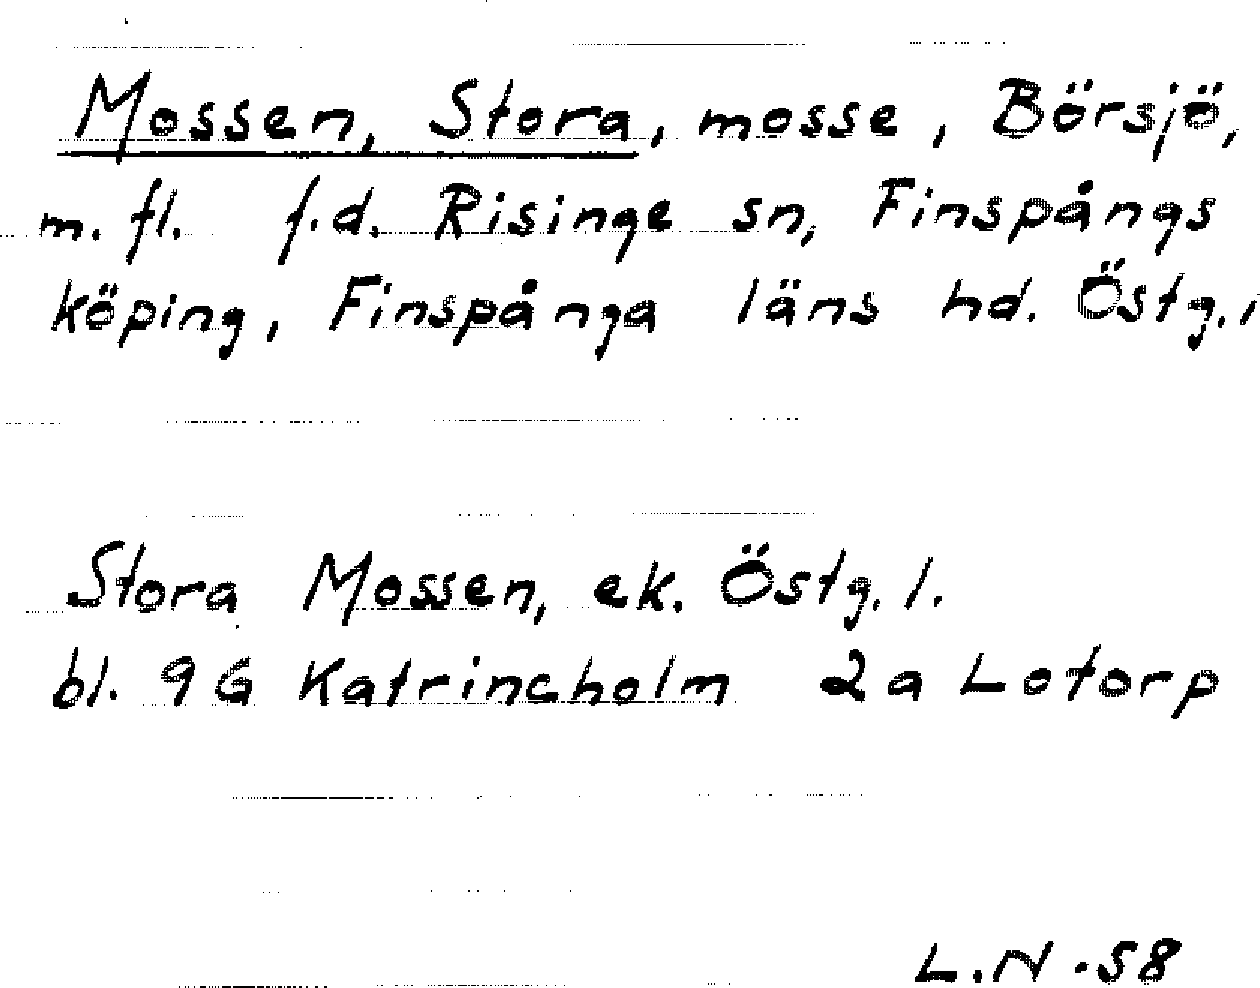 Mossen, Stora, mosse, Börsjö,
m. fl. f.d. Risinge sn, Finspångs
köping, Finspånga läns hd. Östg. l
Stora Mossen, ek. Östg. l.
bl. 9G Katrincholm 2a Lotorp
L.N -58